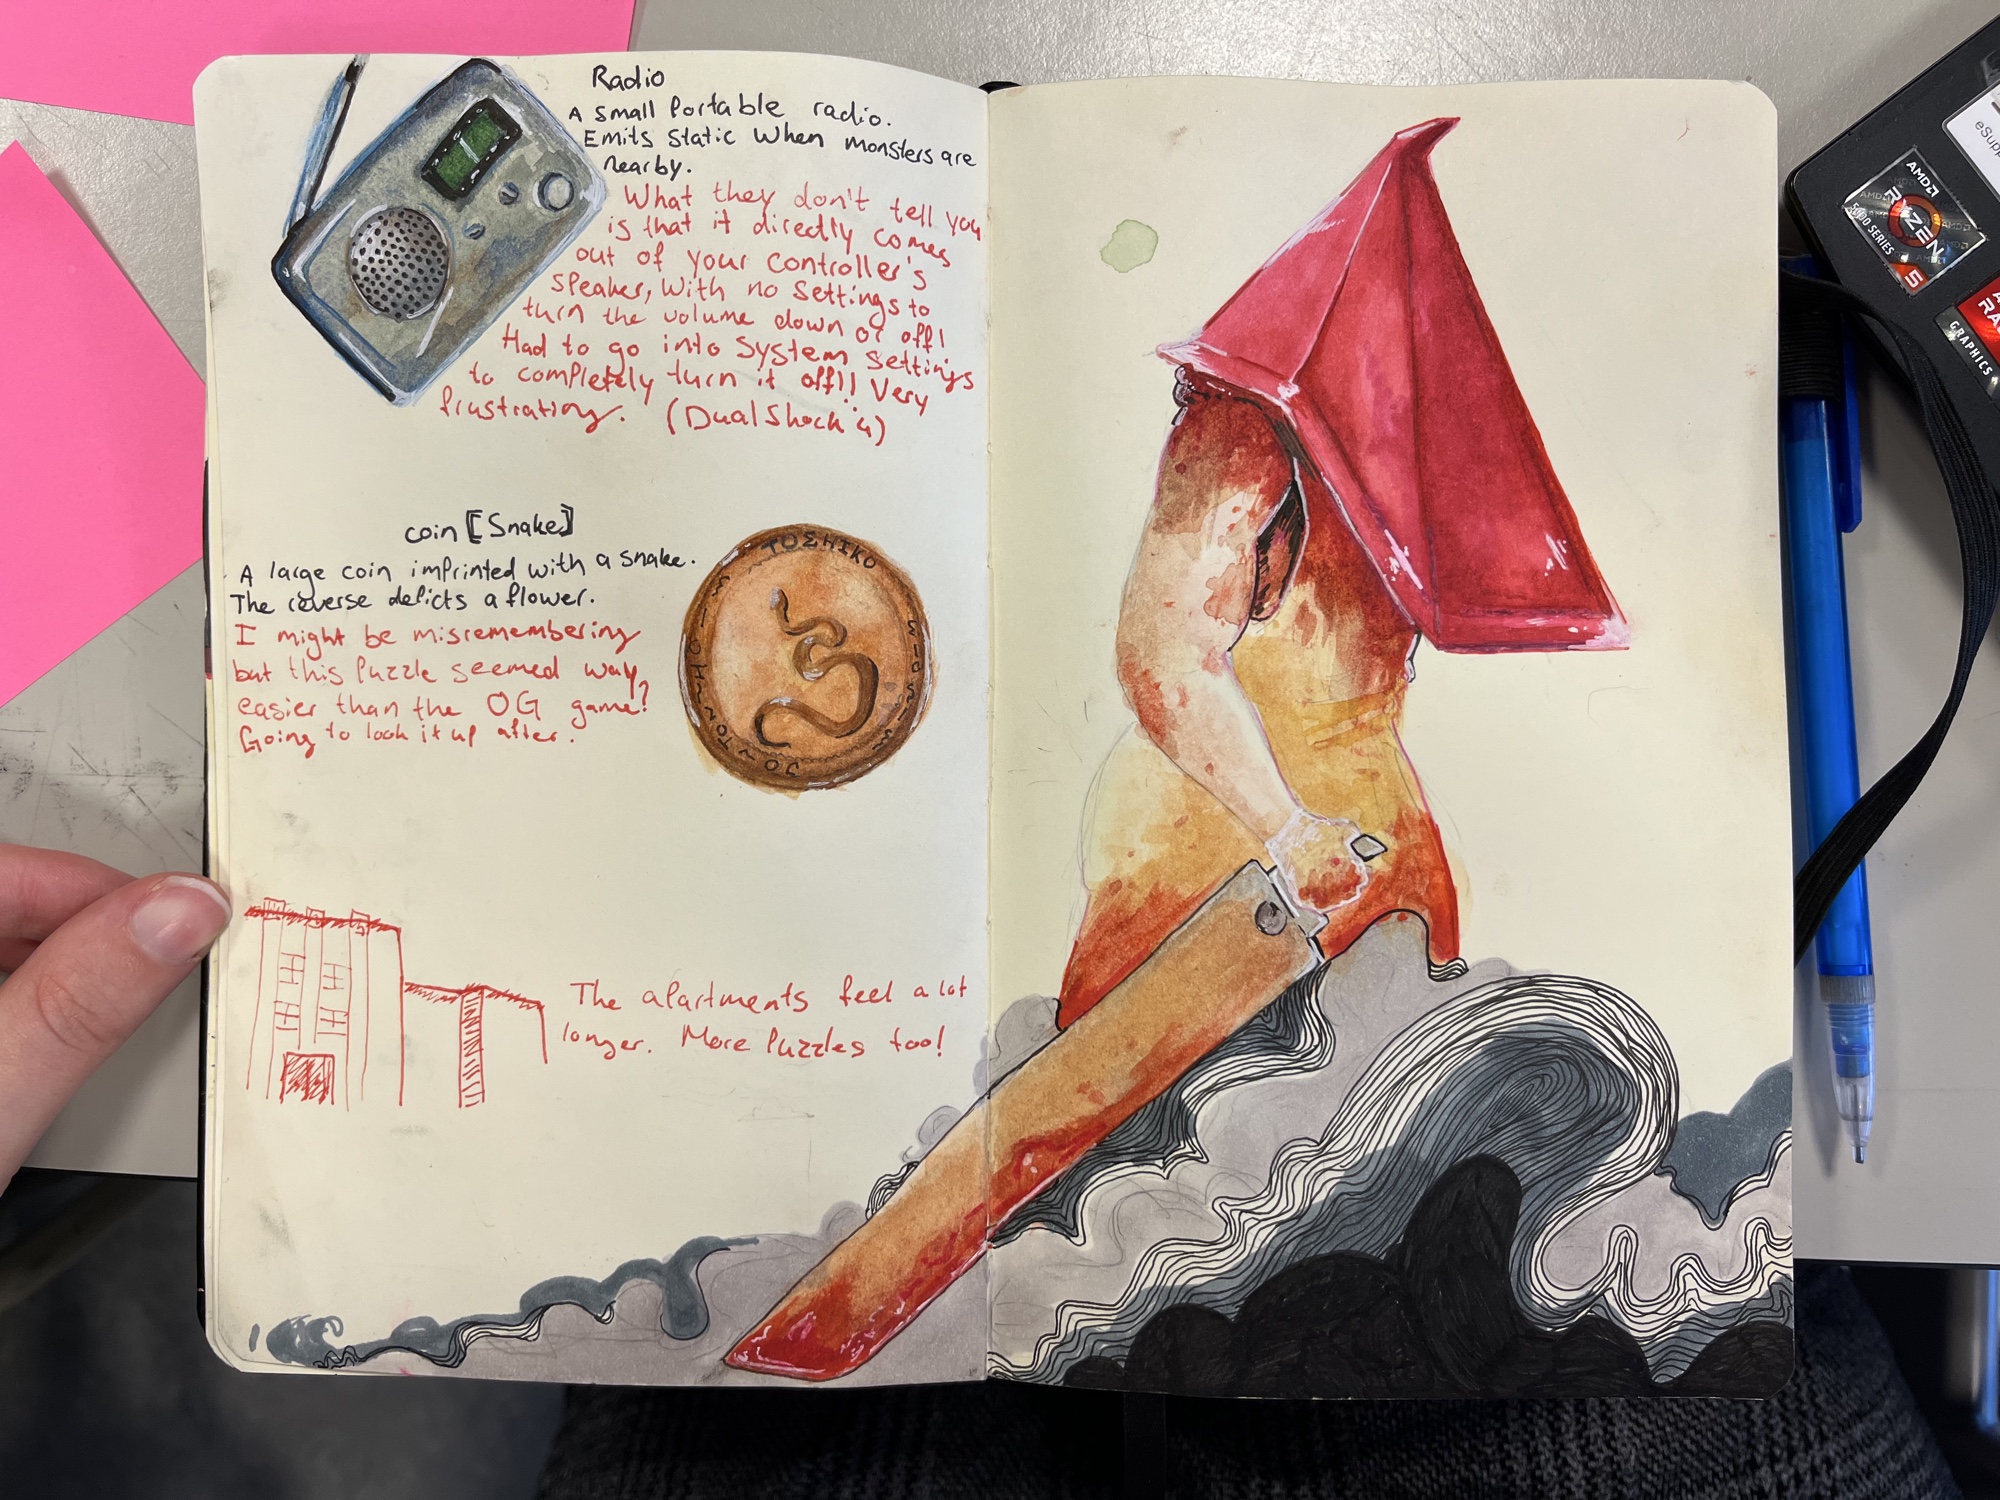 Radio
A small Portable radio.
Emits static When monsters are
nearby.
What they don't tell you
is that it directly comes
out of your controller's
speaker, With no settings to
turn the volume down or off!
Had to go into System settings
to completely turn it off!! Very
frustrating. (DualShock 4)
coin [Snake]
A large coin imprinted with a snake.
The reverse depicts a flower.
I might be misremembering
but this Puzzle seemed way
easier than the OG game?
Going to look it up after.
TOƧHIKO
The apartments feel a lot
longer. More Puzzles too!
eSupp
AMD
RYZEN
5
5000 SERIES
GRAPHICS